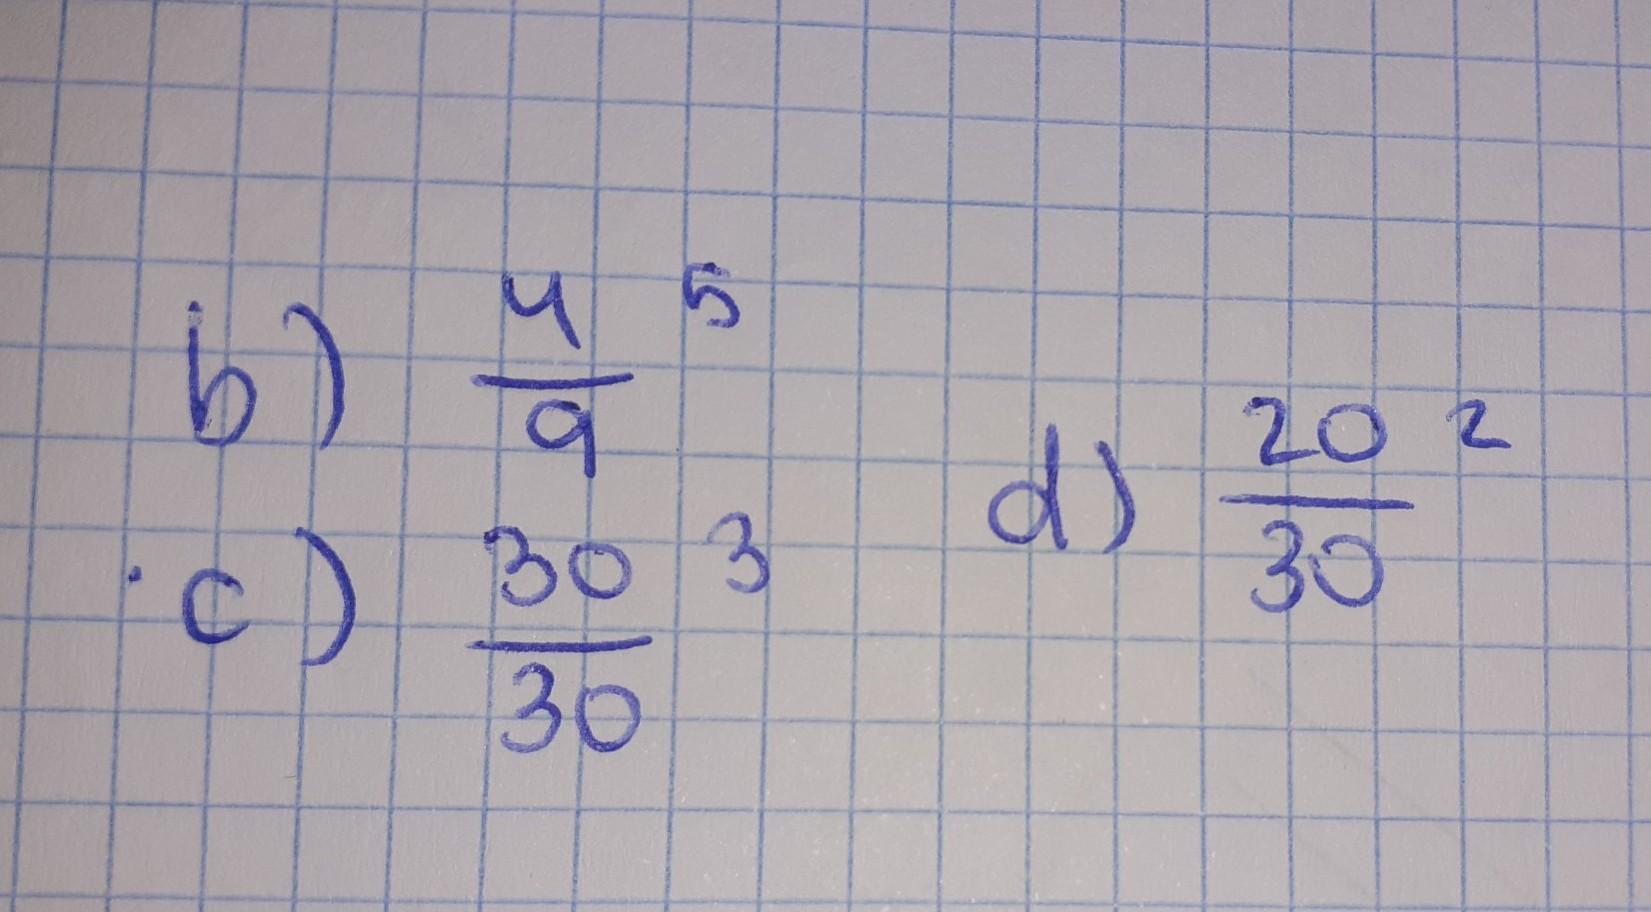 b) 4/9 5
c) 30/30 3
d) 20/30 2